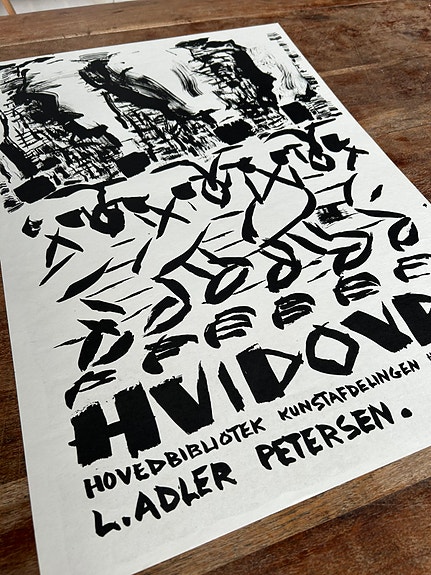 HVIDOV
HOVEDBIBLIOTEK KUNSTAFDELINGEN
L. ADLER PETERSEN.